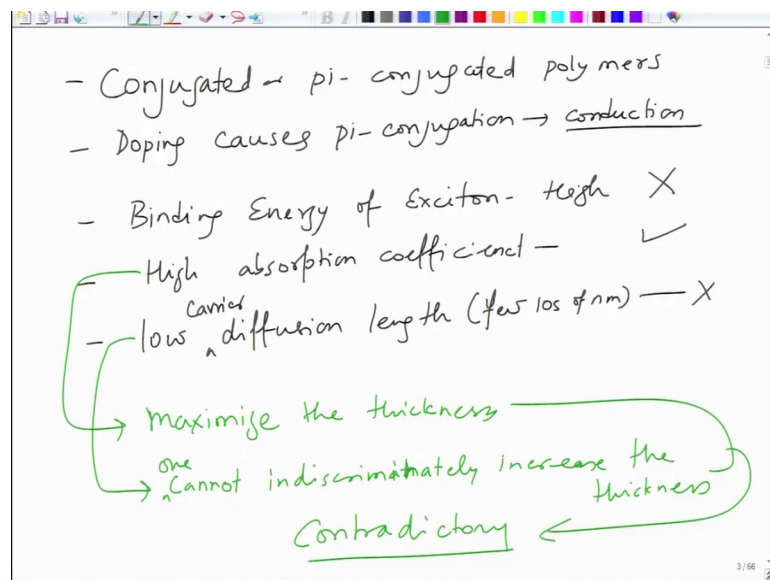 - Conjugated or pi-conjugated polymers
- Doping causes pi-conjugation → conduction
- Binding Energy of Exciton - High X
- High absorption coefficient - ✓
- low carrier diffusion length (few 10s of nm) — X
maximize the thickness
one cannot indiscriminately increase the
thickness
Contradictory
3 / 66